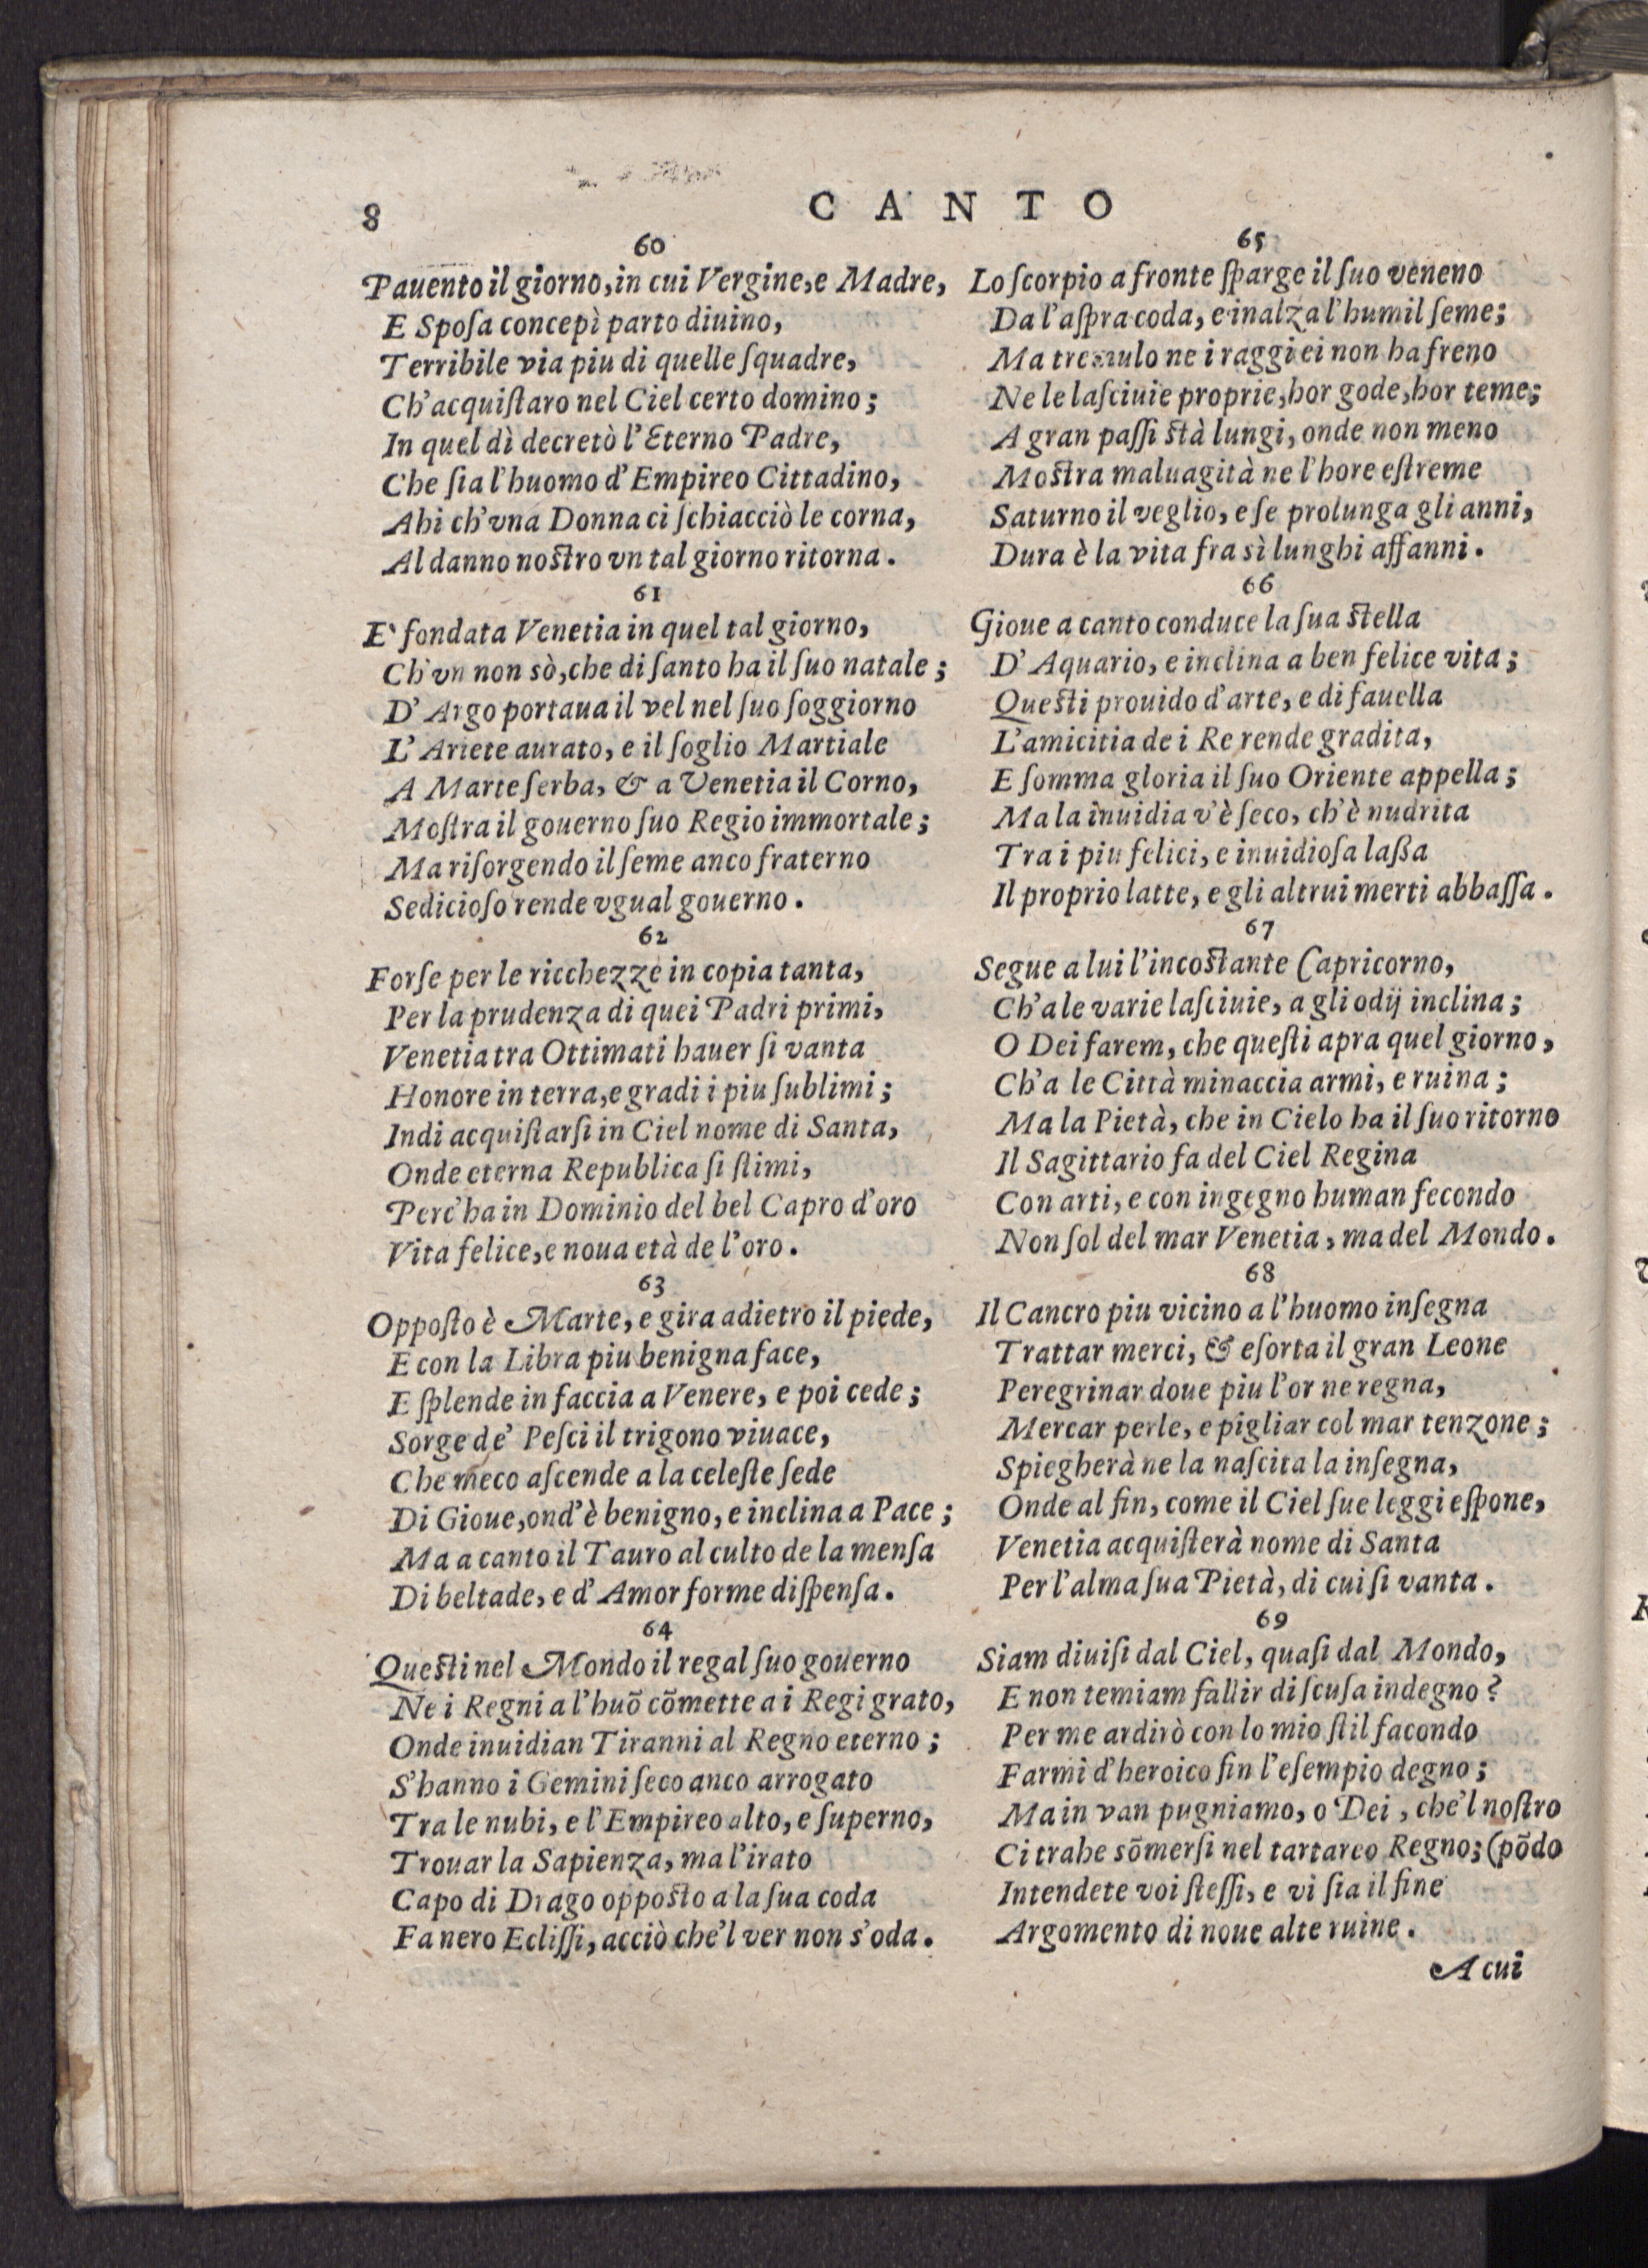 8
CANTO
60
Pauento il giorno, in cui Vergine, e Madre,
E Spoſa concepì parto diuino,
Terribile via piu di quelle ſquadre,
Ch'acquiſtaro nel Ciel certo domino;
In quel dì decretò l'Eterno Padre,
Che ſia l'huomo d'Empireo Cittadino,
Ahi ch'vna Donna ci ſchiacciò le corna,
Al danno noſtro vn tal giorno ritorna.
61
E' fondata Venetia in quel tal giorno,
Ch'vn non sò, che di ſanto ha il ſuo natale;
D'Argo portaua il vel nel ſuo ſoggiorno
L'Ariete aurato, e il ſoglio Martiale
A Marte ſerba, & a Venetia il Corno,
Moſtra il gouerno ſuo Regio immortale;
Ma riſorgendo il ſeme anco fraterno
Sedicioſo rende vgual gouerno.
62
Forſe per le ricchezze in copia tanta,
Per la prudenza di quei Padri primi,
Venetia tra Ottimati hauer ſi vanta
Honore in terra, e gradi i piu ſublimi;
Indi acquiſtarſi in Ciel nome di Santa,
Onde eterna Republica ſi ſtimi,
Perc'ha in Dominio del bel Capro d'oro
Vita felice, e noua età de l'oro.
63
Oppoſto è Marte, e gira adietro il piede,
E con la Libra piu benigna face,
E ſplende in faccia a Venere, e poi cede;
Sorge de' Peſci il trigono viuace,
Che meco aſcende a la celeſte ſede
Di Gioue, ond'è benigno, e inclina a Pace;
Ma a canto il Tauro al culto de la menſa
Di beltade, e d'Amor forme diſpenſa.
64
Queſti nel Mondo il regal ſuo gouerno
Ne i Regni a l'huõ cõmette a i Regi grato,
Onde inuidian Tiranni al Regno eterno;
S'hanno i Gemini ſeco anco arrogato
Tra le nubi, e l'Empireo alto, e ſuperno,
Trouar la Sapienza, ma l'irato
Capo di Drago oppoſto a la ſua coda
Fa nero Ecliſſi, acciò che'l ver non s'oda.
65
Lo ſcorpio a fronte ſparge il ſuo veneno
Da l'aſpra coda, e inalza l'humil ſeme;
Ma tremulo ne i raggi ei non ha freno
Ne le laſciuie proprie, hor gode, hor teme;
A gran paſſi ſtà lungi, onde non meno
Moſtra maluagità ne l'hore eſtreme
Saturno il veglio, e ſe prolunga gli anni,
Dura è la vita fra sì lunghi affanni.
66
Gioue a canto conduce la ſua ſtella
D'Aquario, e inclina a ben felice vita;
Queſti prouido d'arte, e di fauella
L'amicitia de i Re rende gradita,
E ſomma gloria il ſuo Oriente appella;
Ma la inuidia v'è ſeco, ch'è nudrita
Tra i piu felici, e inuidioſa laßa
Il proprio latte, e gli altrui merti abbaſſa.
67
Segue a lui l'incoſtante Capricorno,
Ch'a le varie laſciuie, a gli odij inclina;
O Dei farem, che queſti apra quel giorno,
Ch'a le Città minaccia armi, e ruina;
Ma la Pietà, che in Cielo ha il ſuo ritorno
Il Sagittario fa del Ciel Regina
Con arti, e con ingegno human fecondo
Non ſol del mar Venetia, ma del Mondo.
68
Il Cancro piu vicino a l'huomo inſegna
Trattar merci, & eſorta il gran Leone
Peregrinar doue piu l'or ne regna,
Mercar perle, e pigliar col mar tenzone;
Spiegherà ne la naſcita la inſegna,
Onde al fin, come il Ciel ſue leggi eſpone,
Venetia acquiſterà nome di Santa
Per l'alma ſua Pietà, di cui ſi vanta.
69
Siam diuiſi dal Ciel, quaſi dal Mondo,
E non temiam fallir di ſcuſa indegno?
Per me ardirò con lo mio ſtil facondo
Farmi d'heroico fin l'eſempio degno;
Ma in van pugniamo, o Dei, che'l noſtro
Ci trahe sõmerſi nel tartareo Regno; (põdo
Intendete voi ſteſſi, e vi ſia il fine
Argomento di noue alte ruine.
A cui